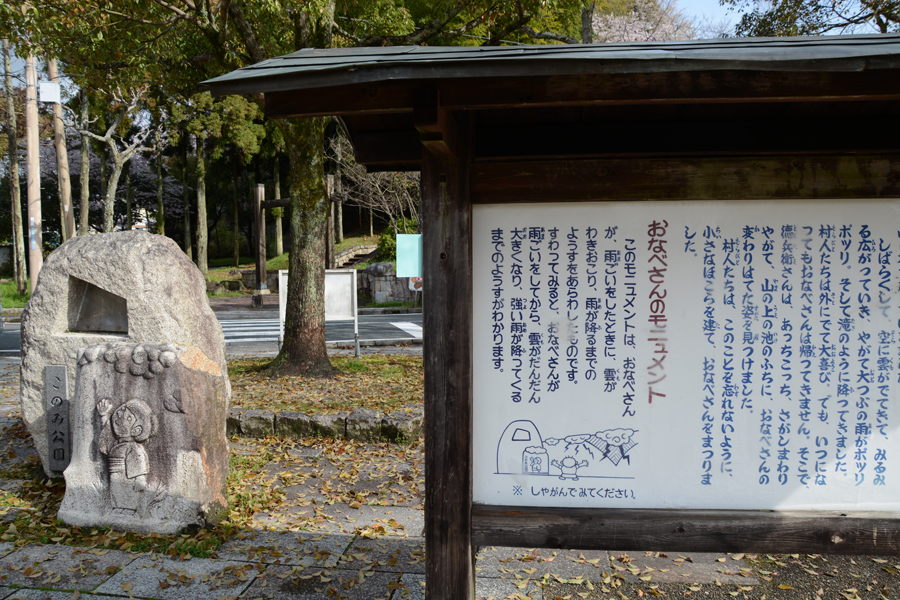 しばらくして、空に雲がでてきて、みるみ
る広がっていき、やがて大つぶの雨がポツリ
ポツリ。そして滝のように降ってきました。
村人たちは外にでて大喜び、でも、いつにな
ってもおなべさんは帰ってきません。そこで、
徳兵衛さんは、あっちこっち、さがしまわり
やがて、山の上の池のふちに、おなべさんの
変わりはてた姿を見つけました。
村人たちは、このことを忘れないように、
小さなほこらを建て、おなべさんをまつりま
した。
おなべさんのモニュメント
このモニュメントは、おなべさん
が、雨ごいをしたときに、雲が
わきおこり、雨が降るまでの
ようすをあらわしたものです。
すわってみると、おなべさんが
雨ごいをしてから、雲がだんだん
大きくなり、強い雨が降ってくる
までのようすがわかります。
※ しゃがんでみてください。
このみ公園